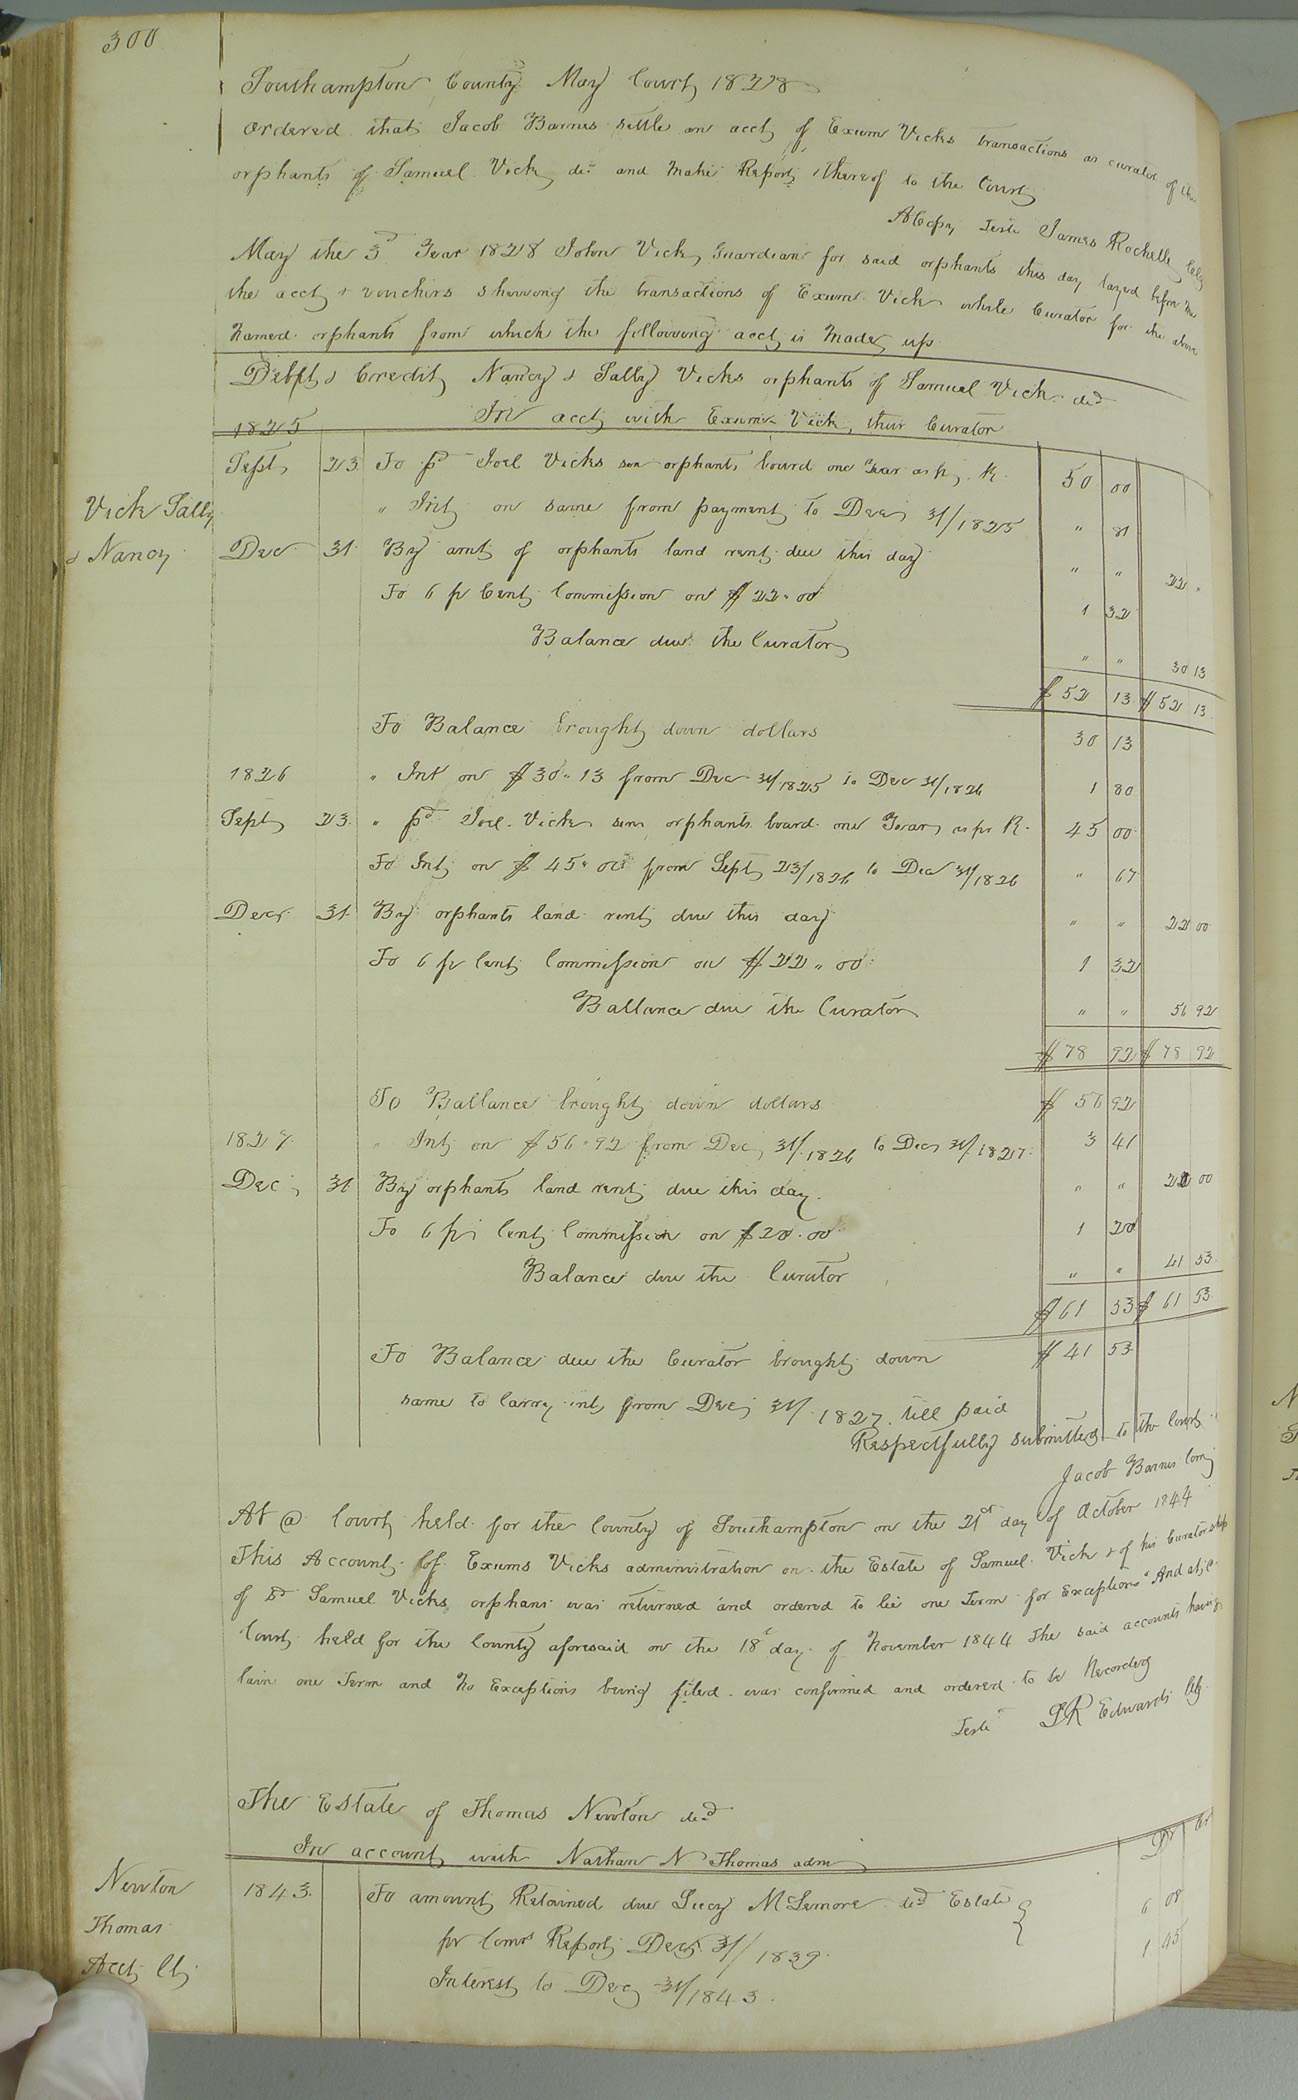 300
Southampton County May Court 1828
Ordered that Jacob Barnes settle an acct of Exum Vicks transactions as curator of the
orphants of Samuel Vick decd and make Report thereof to the Court
A Copy Teste James Rochelle Clk
May the 3d Year 1828 John Vick, Guardian for said orphants this day layed before me
the acct & vouchers shewing the transactions of Exum Vick while Curator for the above
Named orphants from which the following acct is made up
Debt & Credit Nancy & Sally Vicks orphants of Samuel Vick decd
1825 In acct with Exum Vick, their Curator
Sept 23 To pd Joel Vicks orphants bourd one Year as pr R. 50 00
Vick Sally
" Int on same from payment to Dec 31/1825 " 81
& Nancy
Dec 31 By amt of orphants land rent due this day " " 22 "
To 6 pr Cent Commission on $22"00 1 32
Balance due the Curator " " 30 13
$ 52 13 $ 52 13
To Balance brought down dollars 30 13
1826 " Int on $30"13 from Dec 31/1825 to Dec 31/1826 1 80
Sept 23 " pd Joel Vicks orphants board one Year as pr R. 45 00
To Int on $45"00 from Sept 23/1826 to Dec 31/1826 " 67
Decr 31 By orphants land rent due this day " " 22 00
To 6 pr Cent Commission on $22"00 1 32
Ballance due the Curator " " 56 92
$ 78 92 $ 78 92
To Ballance brought down dollars $ 56 92
1827 " Int on $56"92 from Dec 31/1826 to Dec 31/1827 3 41
Dec 31 By orphants land rent due this day " " 00
To 6 pr Cent Commission on $20.00 1 20
Balance due the Curator " " 41 53
$ 61 53 $ 61 53
To Balance due the Curator brought down $ 41 53
same to Carry int from Dec 31/1827 till paid
Respectfully submitted to the Court
Jacob Barnes Comr
At @ Court held for the County of Southampton on the 21st day of October 1844
This Account of Exums Vicks administration on the Estate of Samuel Vick & of his Curatorship
of sd Samuel Vicks orphans was returned and ordered to lie one Term for Exceptions" And at @
Court held for the County aforesaid on the 18t day of November 1844 The said accounts having
lain one Term and No Exceptions being filed was confirmed and ordered to be Recorded
Teste LR Edwards Clk
The Estate of Thomas Newton decd
In account with Nathan N Thomas adm Dr Cr
Newton
1843. To amount Retained due Lucy McLemore decd Estate 6 08
Thomas
pr Comrs Report Decr 31/1839. 1 45
Acct Ct
Interest to Dec 31/1843.